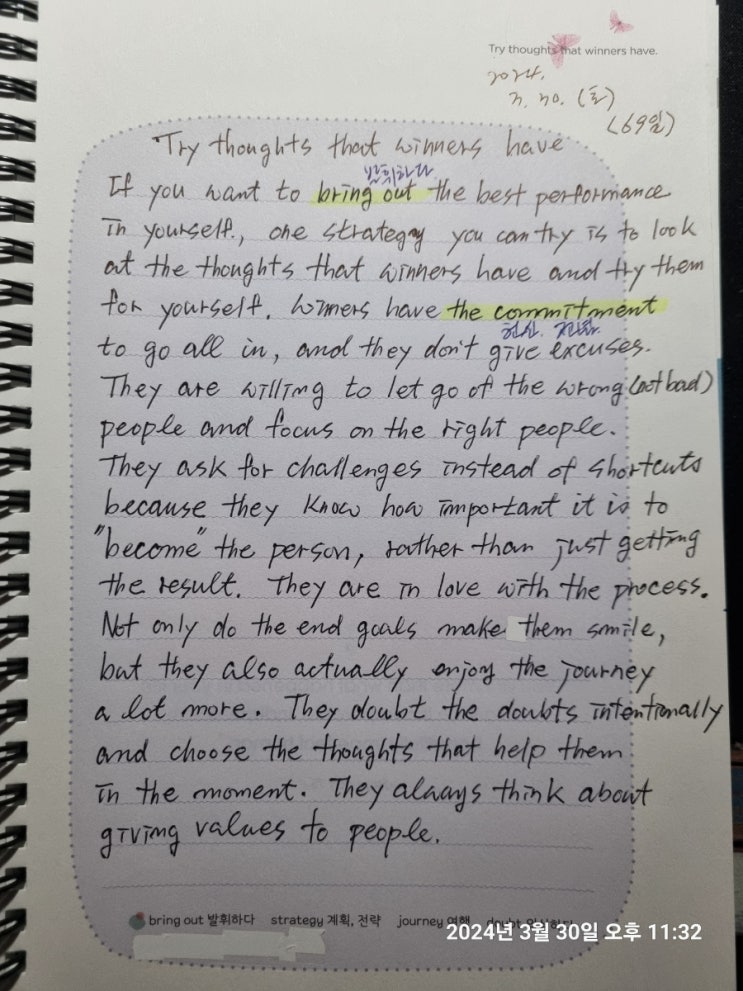 Try thoughts that winners have.
2024.
3. 30. (토)
(69일)
Try thoughts that winners have
발휘하다
If you want to bring out the best performance
in yourself, one strategy you can try is to look
at the thoughts that winners have and try them
for yourself. Winners have the commitment
헌신.
to go all in, and they don't give excuses.
They are willing to let go of the wrong (not bad)
people and focus on the right people.
They ask for challenges instead of shortcuts
because they know how important it is to
"become" the person, rather than just getting
the result. They are in love with the process.
Not only do the end goals make them smile,
but they also actually enjoy the journey
a lot more. They doubt the doubts intentionally
and choose the thoughts that help them
in the moment. They always think about
giving values to people.
bring out 발휘하다 strategy 계획, 전략 journey 여행 doubt 의심하다
2024년 3월 30일 오후 11:32